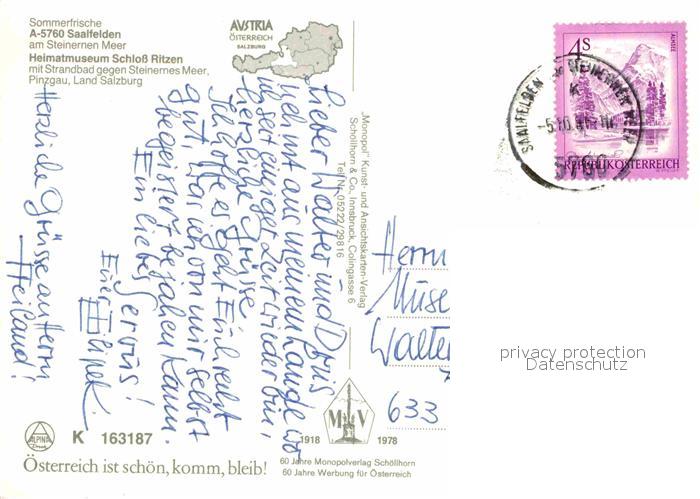 Sommerfrische
A-5760 Saalfelden
am Steinernen Meer
Heimatmuseum Schloß Ritzen
mit Strandbad gegen Steinernes Meer,
Pinzgau, Land Salzburg
AUSTRIA
ÖSTERREICH
SALZBURG
4S
ALMSEE
REPUBLIK ÖSTERREICH
SAALFELDEN AM STEINERNEN MEER
5760
Lieber Walter und Doris
nehmt aus meinem Lande wo
ich seit einiger Zeit wieder bin,
herzliche Grüsse
Ich hoffe es geht Euch recht
gut, was ich von mir selbst
begeistert bejahen kann.
Ein liebes
Servus!
Euer
Herzliche Grüsse an Herrn
Heiland!
„Monopol" Kunst- und Ansichtskarten-Verlag
Schöllhorn & Co., Innsbruck, Colingasse 6
Tel. Nr. 05222/29816
Herrn
Muse
Walter
633
privacy protection
Datenschutz
ALPINA
Druck
K 163187
M V
1918 1978
Österreich ist schön, komm, bleib!
60 Jahre Monopolverlag Schöllhorn
60 Jahre Werbung für Österreich